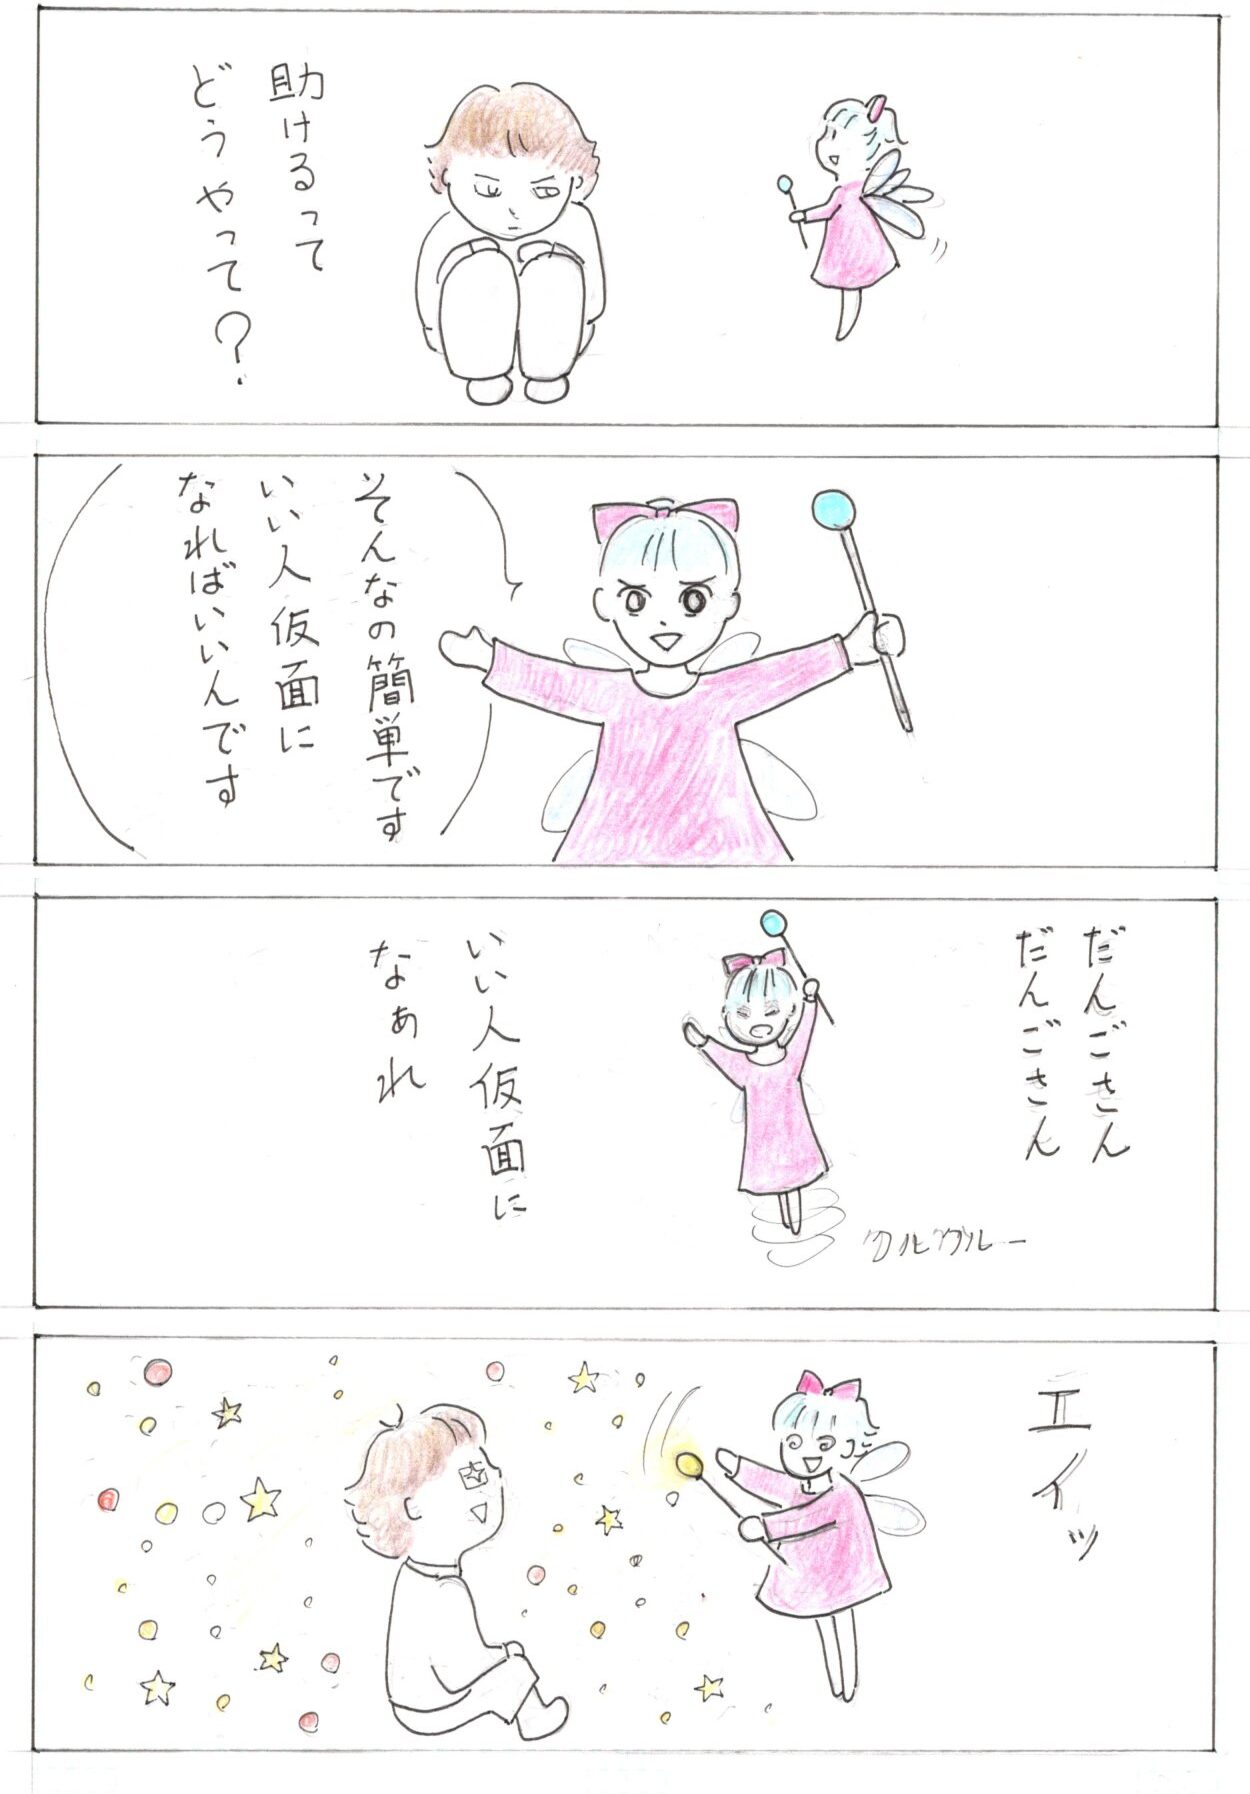 助けるって
どうやって?
そんなの簡単です
いい人仮面に
なればいいんです
だんごさん
だんごさん
クルクルー
いい人仮面に
なぁれ
エイッ